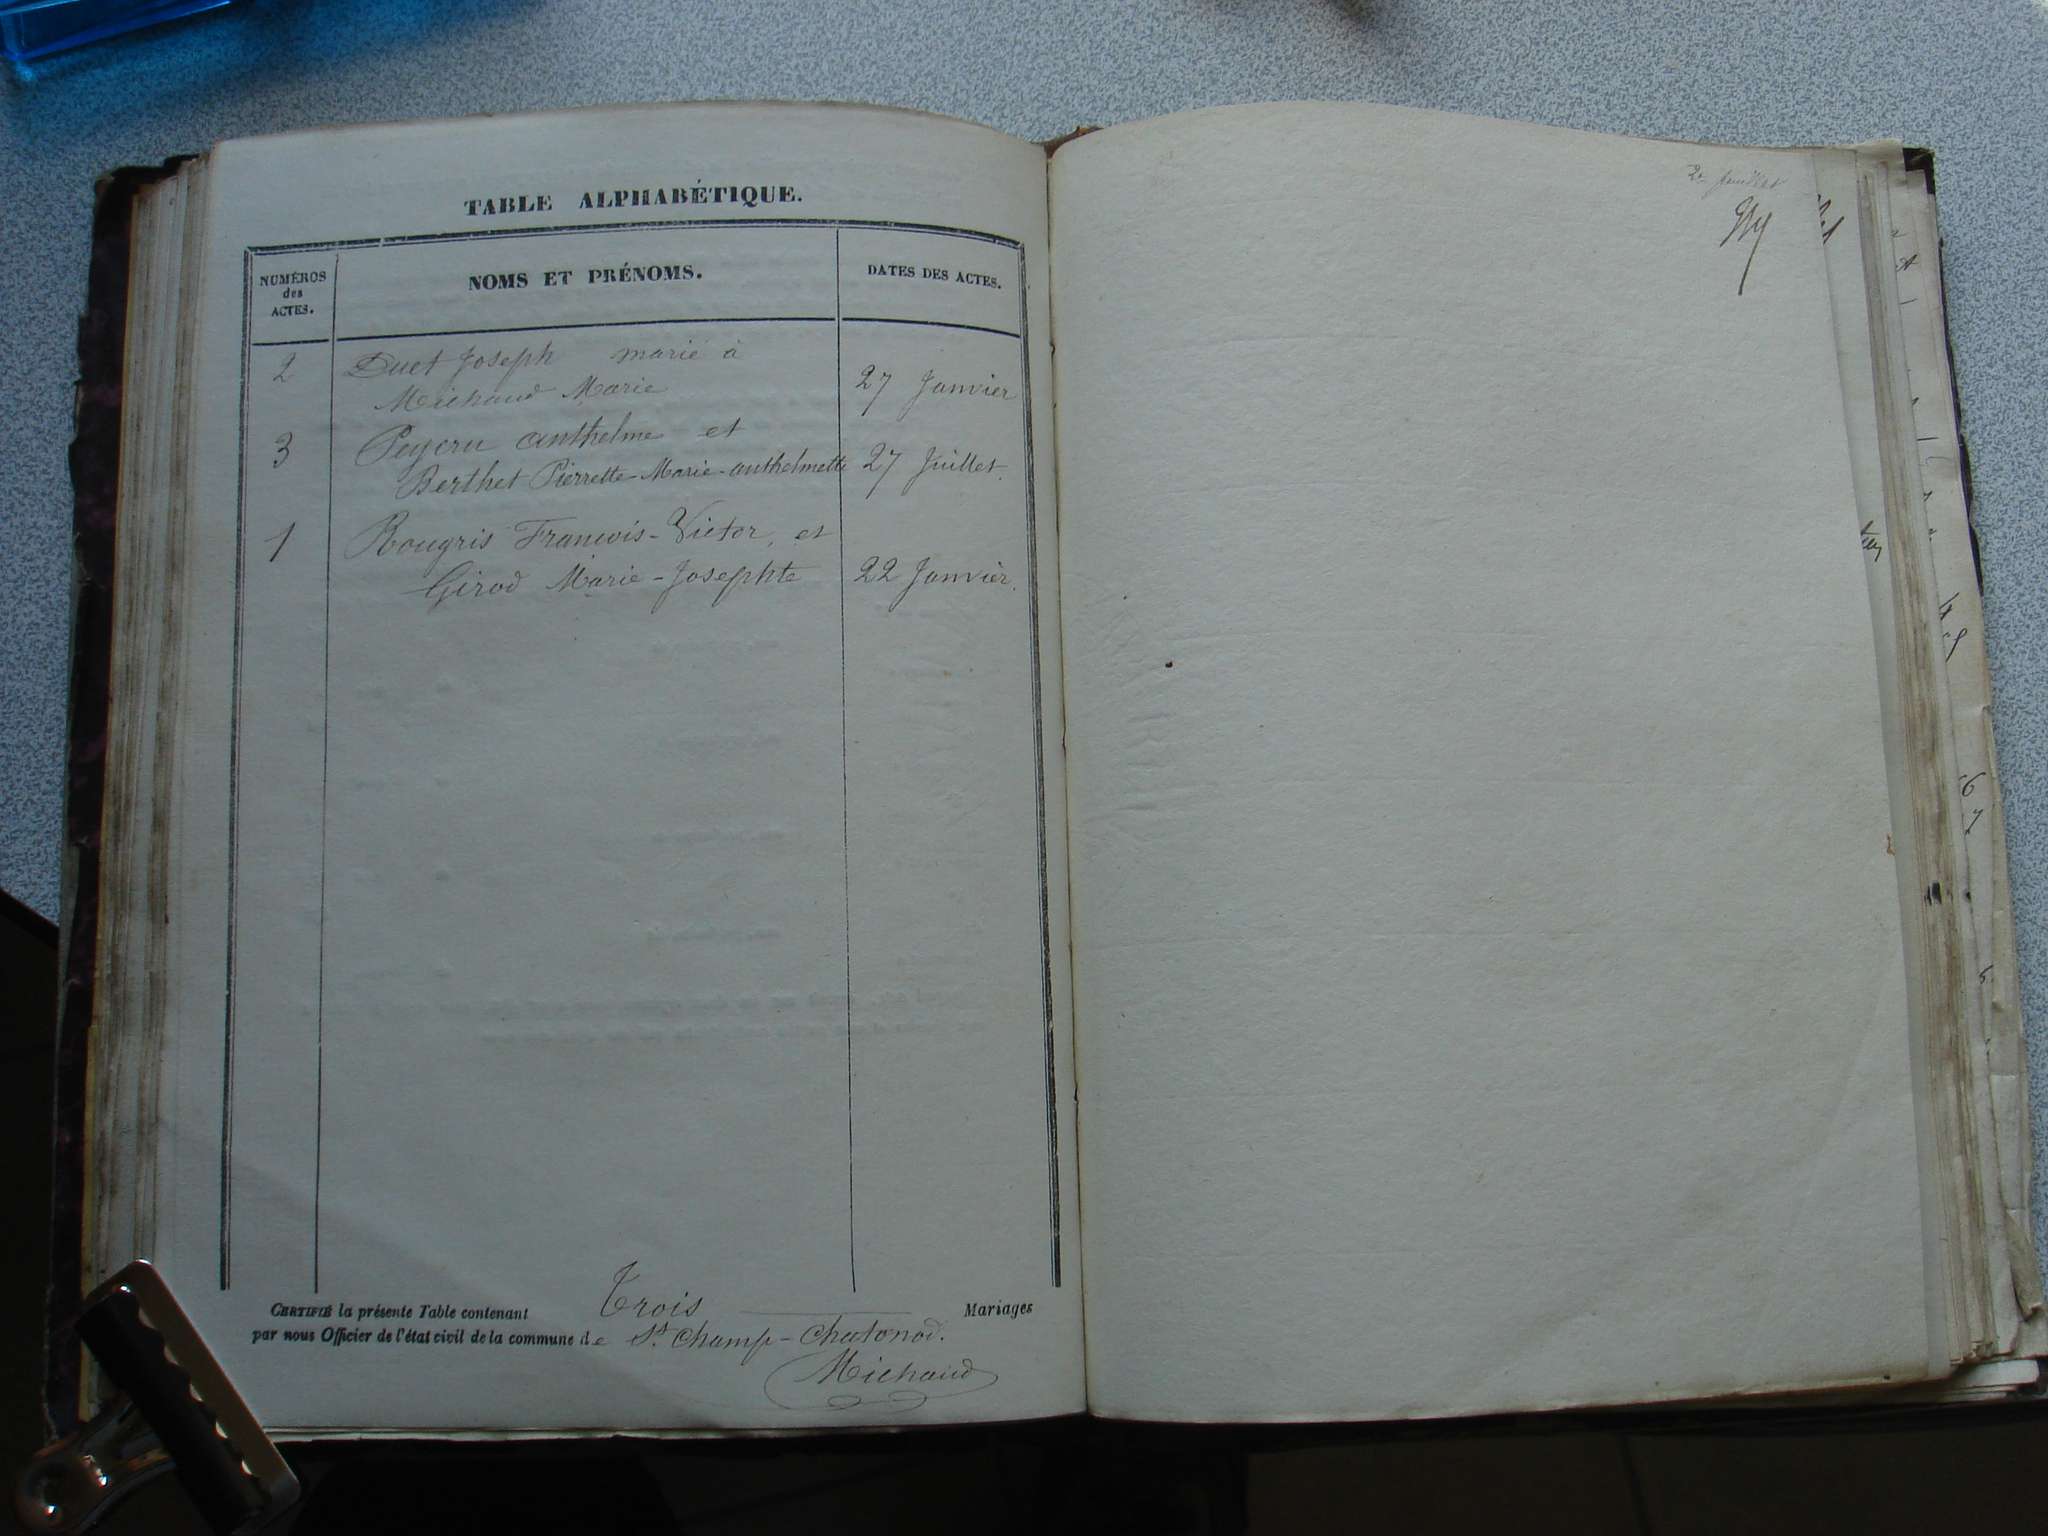 TABLE ALPHABÉTIQUE.
NUMÉROS
des
ACTES.
NOMS ET PRÉNOMS.
DATES DES ACTES.
2 Duet Joseph marié à
Michaud Marie 27 Janvier
3 Peycru anthelme et
Berthet Pierrette-Marie-anthelmette 27 Juillet.
1 Rougris François-Victor, et
Girod Marie-Josephte 22 Janvier.
CERTIFIÉ la présente Table contenant Trois Mariages
par nous Officier de l'état civil de la commune de St. Champ-Chatonod.
Michaud
2e feuillet